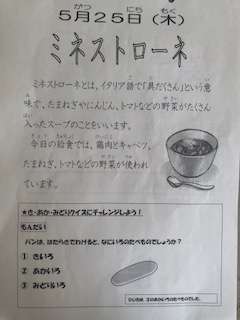 がつ にち もく
5月25日(木)
ミネストローネ
ミネストローネとは、イタリア語で「具だくさん」という意
味で、たまねぎやにんじん、トマトなどの野菜がたくさん
入ったスープのことをいいます。
今日の給食では、鶏肉とキャベツ、
たまねぎ、トマトなどの野菜が使われ
ています。
★き・あか・みどりクイズにチャレンジしよう!
もんだい
パンは、はたらきでわけると、なにいろのたべものでしょうか?
① きいろ
② あかいろ
③ みどりいろ